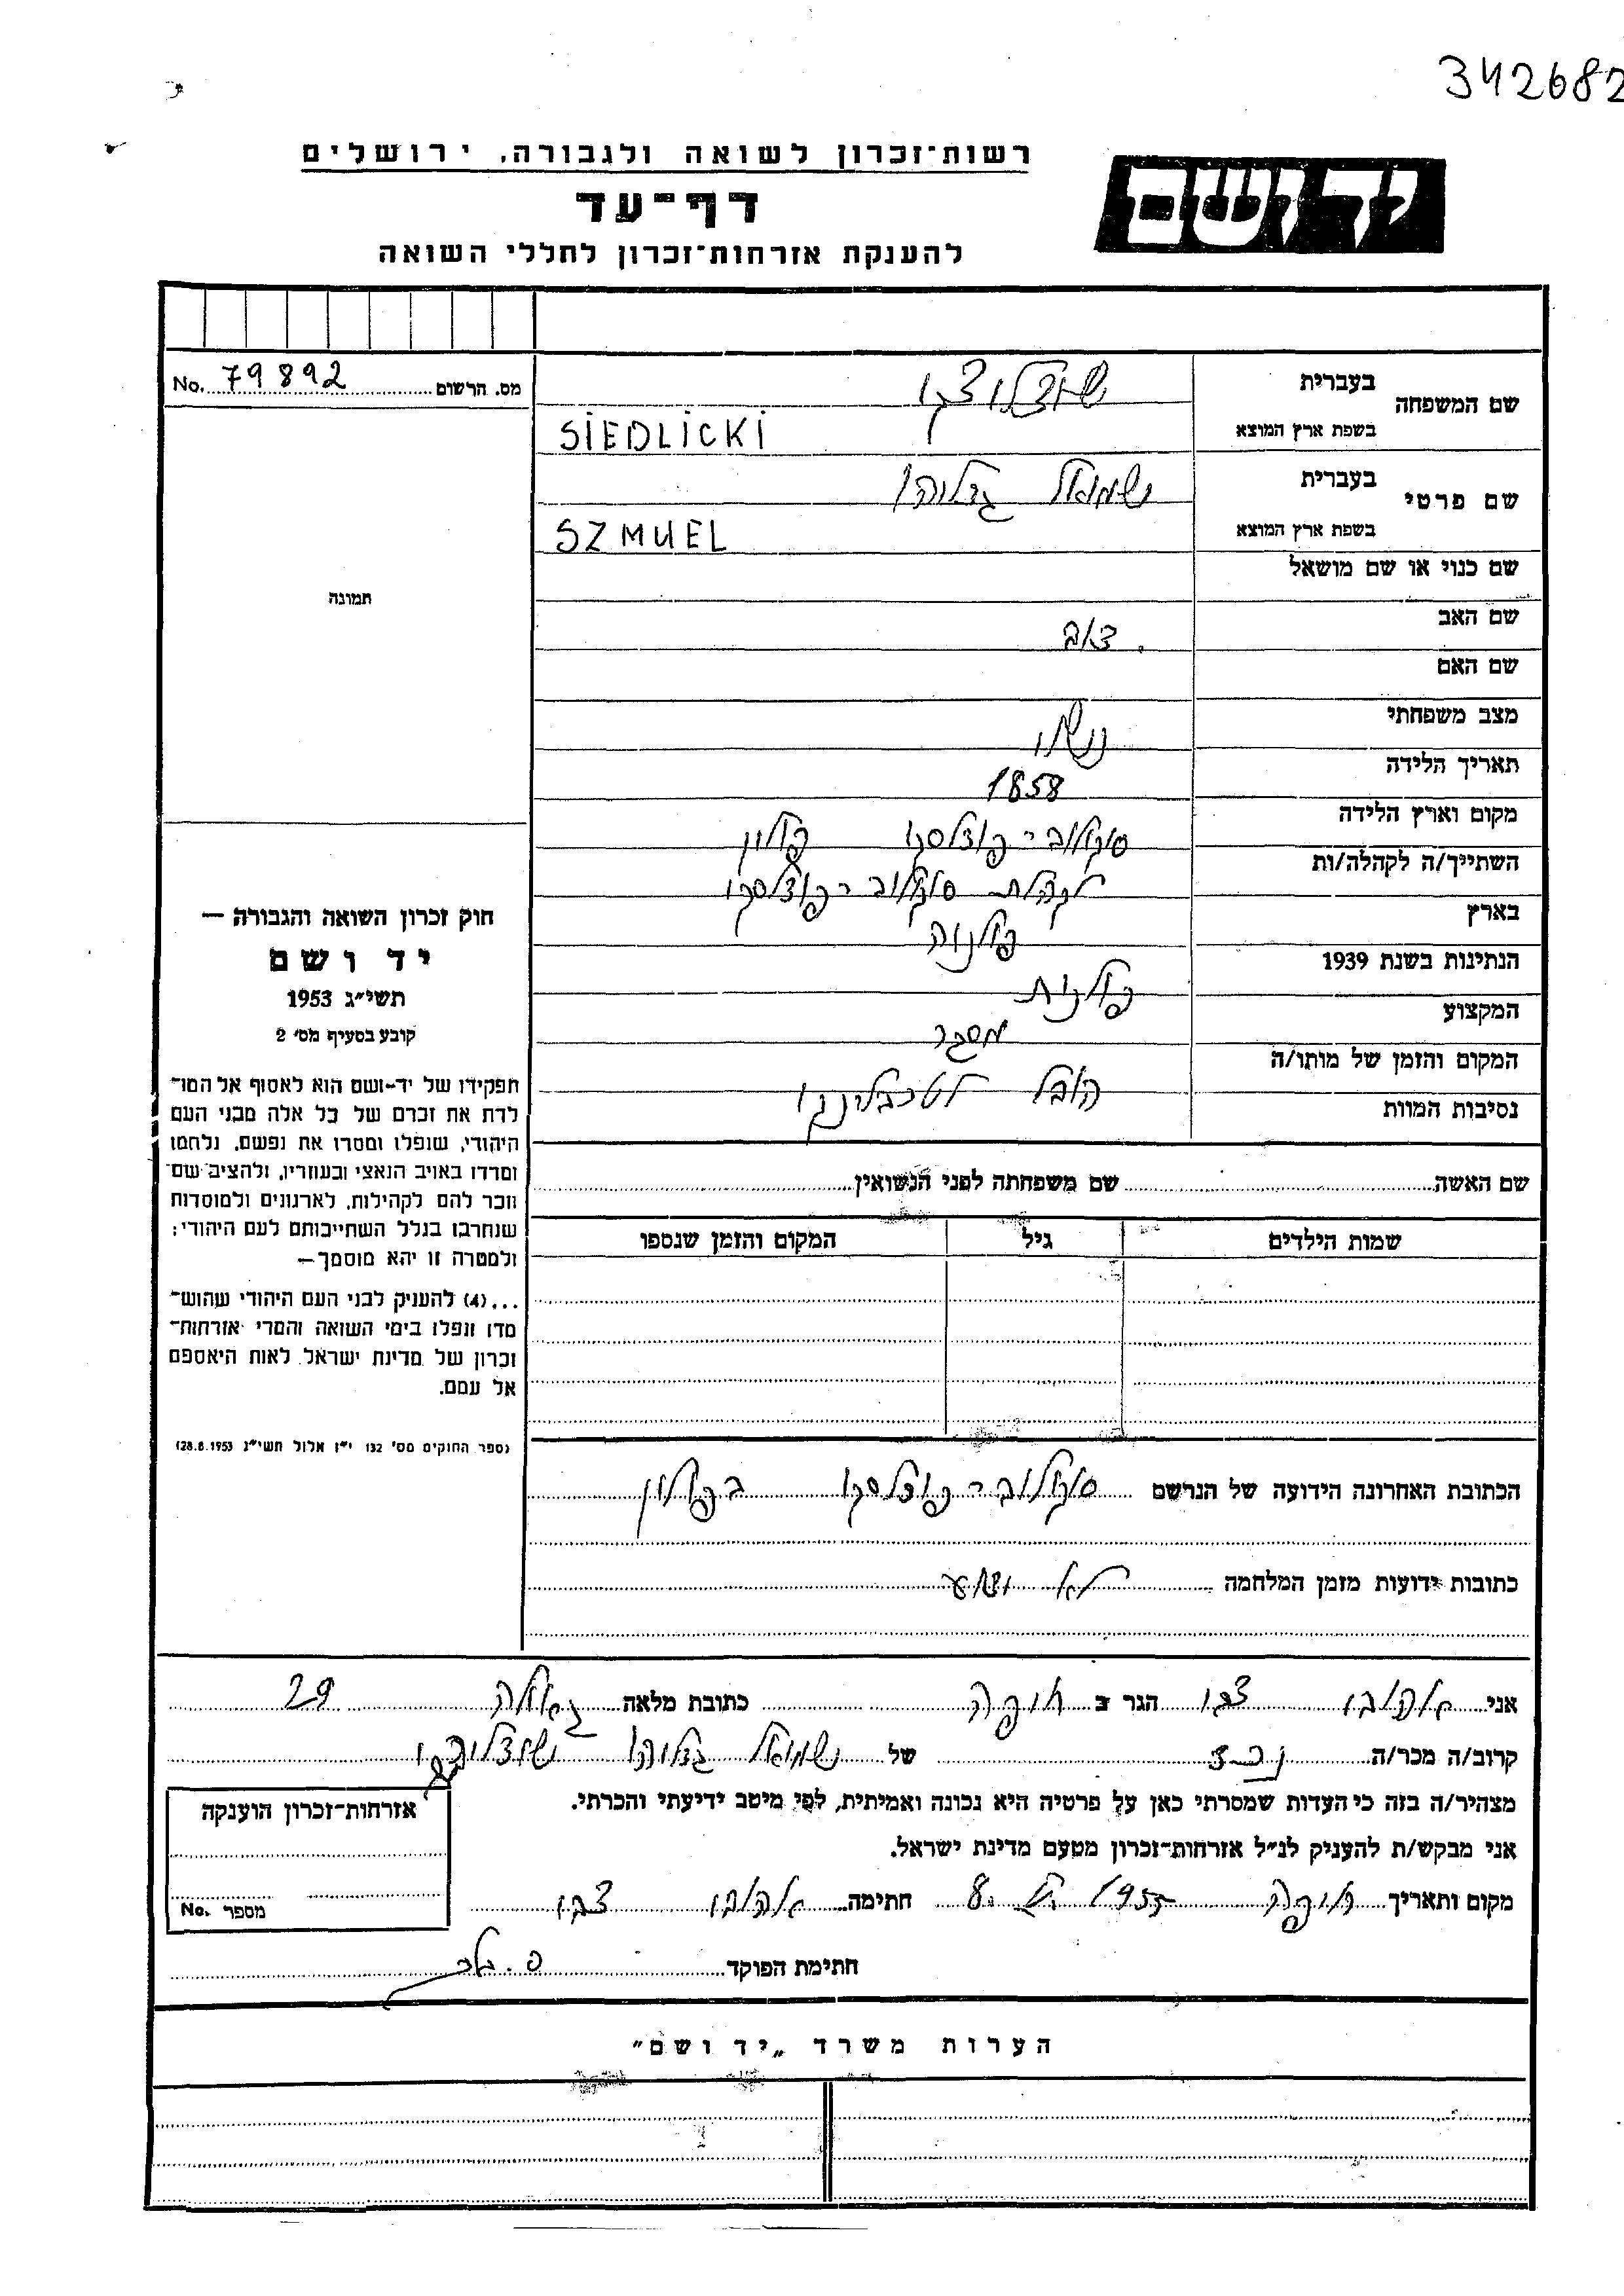 342682
רשות־זכרון לשואה ולגבורה, ירושלים
יד ושם
דף־עד
להענקת אזרחות־זכרון לחללי השואה
מס. הרשום 79892 No.
שם המשפחה
בעברית שידליצקי
בשפת ארץ המוצא SIEDLICKI
שם פרטי
בעברית שמואל גדליהו
בשפת ארץ המוצא SZMUEL
שם כנוי או שם מושאל
שם האב זאב
שם האם
מצב משפחתי נשוי
תאריך הלידה 1858
מקום וארץ הלידה סוקולוב־פודלסקי פולין
השתייך/ה לקהלה/ות לקהלת סוקולוב־פודלסקי
בארץ פולניה
הנתינות בשנת 1939 פולנית
המקצוע מסגר
המקום והזמן של מותו/ה
נסיבות המוות הובל לטרבלינקי
תמונה
חוק זכרון השואה והגבורה —
יד ושם
תשי״ג 1953
קובע בסעיף מס׳ 2
תפקידו של יד־ושם הוא לאסוף אל המו־
לדת את זכרם של כל אלה מבני העם
היהודי, שנפלו ומסרו את נפשם, נלחמו
ומרדו באויב הנאצי ובעוזריו, ולהציב שם
וזכר להם לקהילות, לארגונים ולמוסדות
שנחרבו בגלל השתייכותם לעם היהודי;
ולמטרה זו יהא מוסמך —
...(4) להעניק לבני העם היהודי שהוש־
מדו ונפלו בימי השואה והמרי אזרחות־
זכרון של מדינת ישראל לאות היאספם
אל עמם.
(ספר החוקים מס׳ 132 י״ז אלול תשי״ג 28.8.1953)
שם האשה שם משפחתה לפני הנשואין
שמות הילדים גיל המקום והזמן שנספו
הכתובת האחרונה הידועה של הנרשם סוקולוב־פודלסקי בפולין
כתובות ידועות מזמן המלחמה לא ידוע
אני צבי הגר ב חיפה כתובת מלאה גאולה 29
קרוב/ה מכר/ה נכד של שמואל גדליהו שידליצקי
מצהיר/ה בזה כי העדות שמסרתי כאן על פרטיה היא נכונה ואמיתית, לפי מיטב ידיעתי והכרתי.
אני מבקש/ת להעניק לנ״ל אזרחות־זכרון מטעם מדינת ישראל.
מקום ותאריך חיפה 1955 8 חתימה צבי
חתימת הפוקד
אזרחות־זכרון הוענקה
מספר No.
הערות משרד „יד ושם״